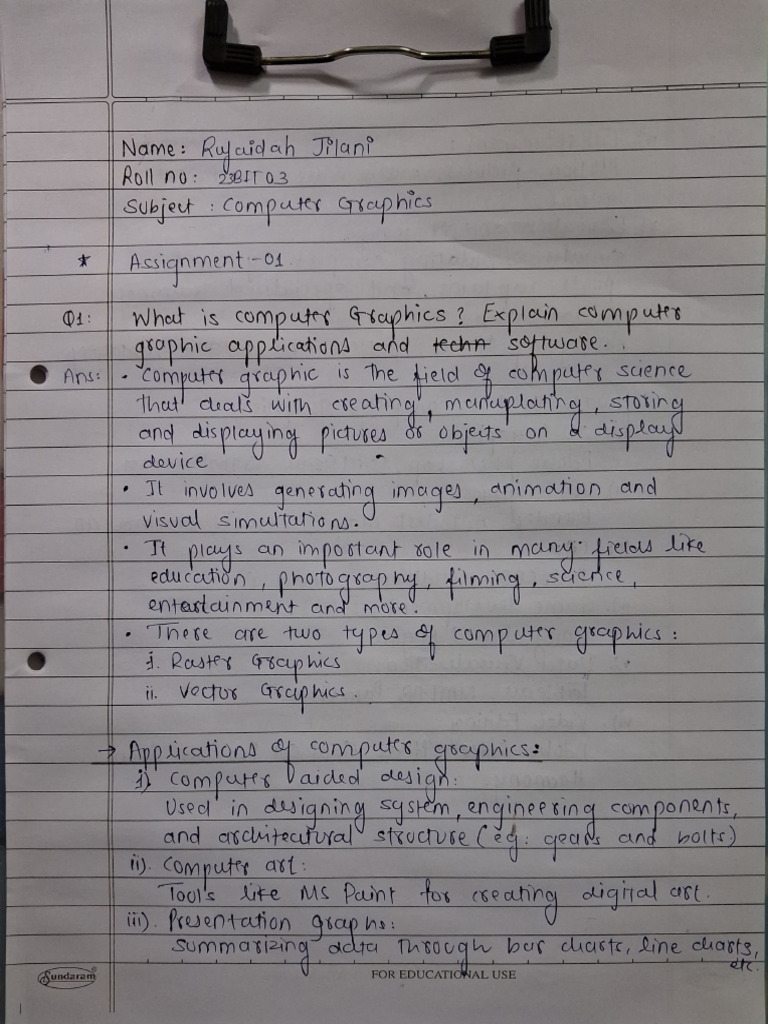 Name: Rufaidah Jilani
Roll no: 23BIT03
Subject : Computer Graphics
* Assignment -01
Q1: What is computer Graphics? Explain computer
graphic applications and techn software.
Ans: • Computer graphic is the field of computer science
that deals with creating, manuplating, storing
and displaying pictures or objects on a display
device
• It involves generating images, animation and
visual simultations.
• It plays an important role in many fields like
education, photography, filming, science,
entertainment and more.
• There are two types of computer graphics :
i. Raster Graphics
ii. Vector Graphics.
→ Applications of computer graphics:
i) Computer aided design:
Used in designing system, engineering components,
and architectural structure (eg: gears and bolts)
ii). Computer art:
Tool's like MS Paint for creating digital art.
iii). Presentation graphs:
Summarizing data through bar charts, line charts,
etc.
Sundaram®
FOR EDUCATIONAL USE